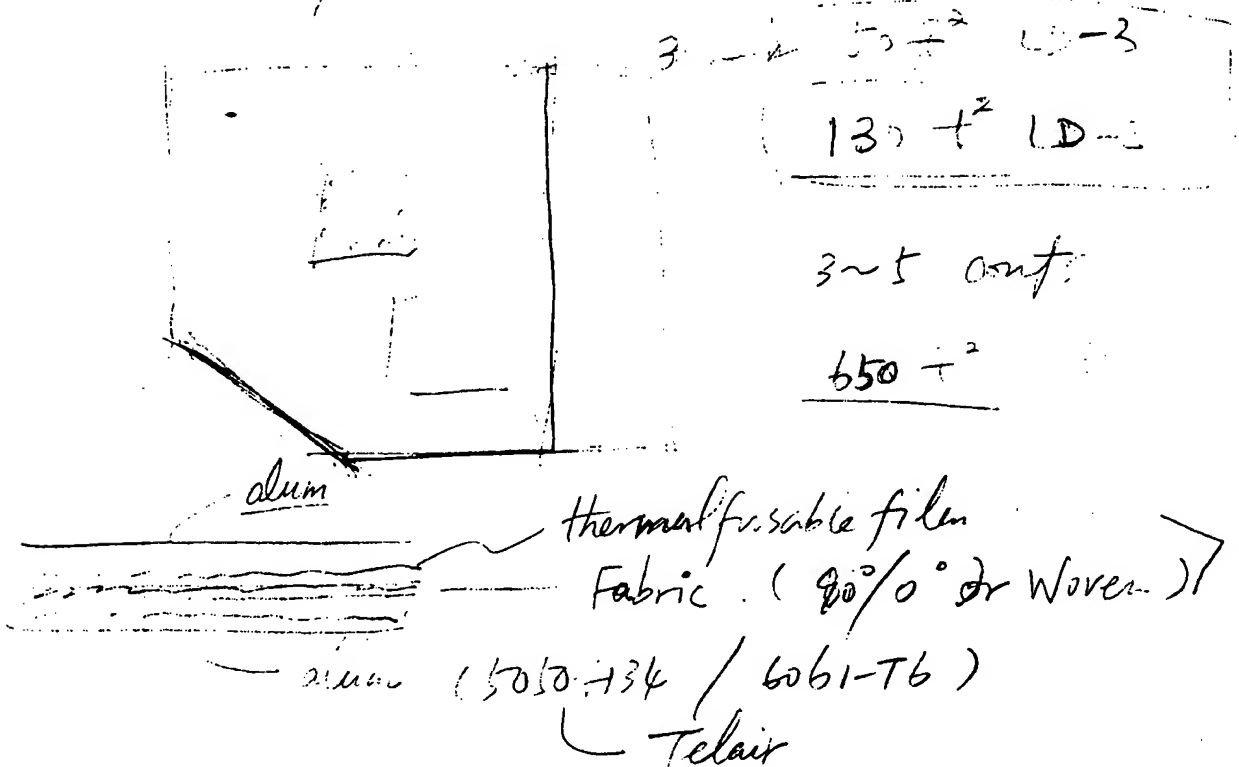 3
LD-3
130 t² LD-
3~5 cont.
650 t²
alum
thermal fusable film
Fabric. (90°/0° or Woven)
alum (5050-H34 / 6061-T6)
Telair